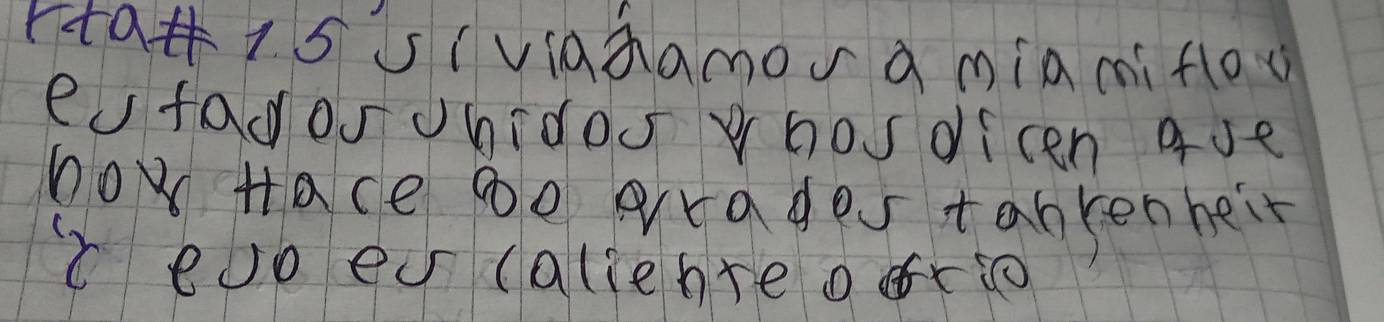 rta# 1.5 si viajamos a miami flori
estados unidos y nos dicen que
hoy Hace 80 grados tahrenheit
¿ eso es caliente o frio